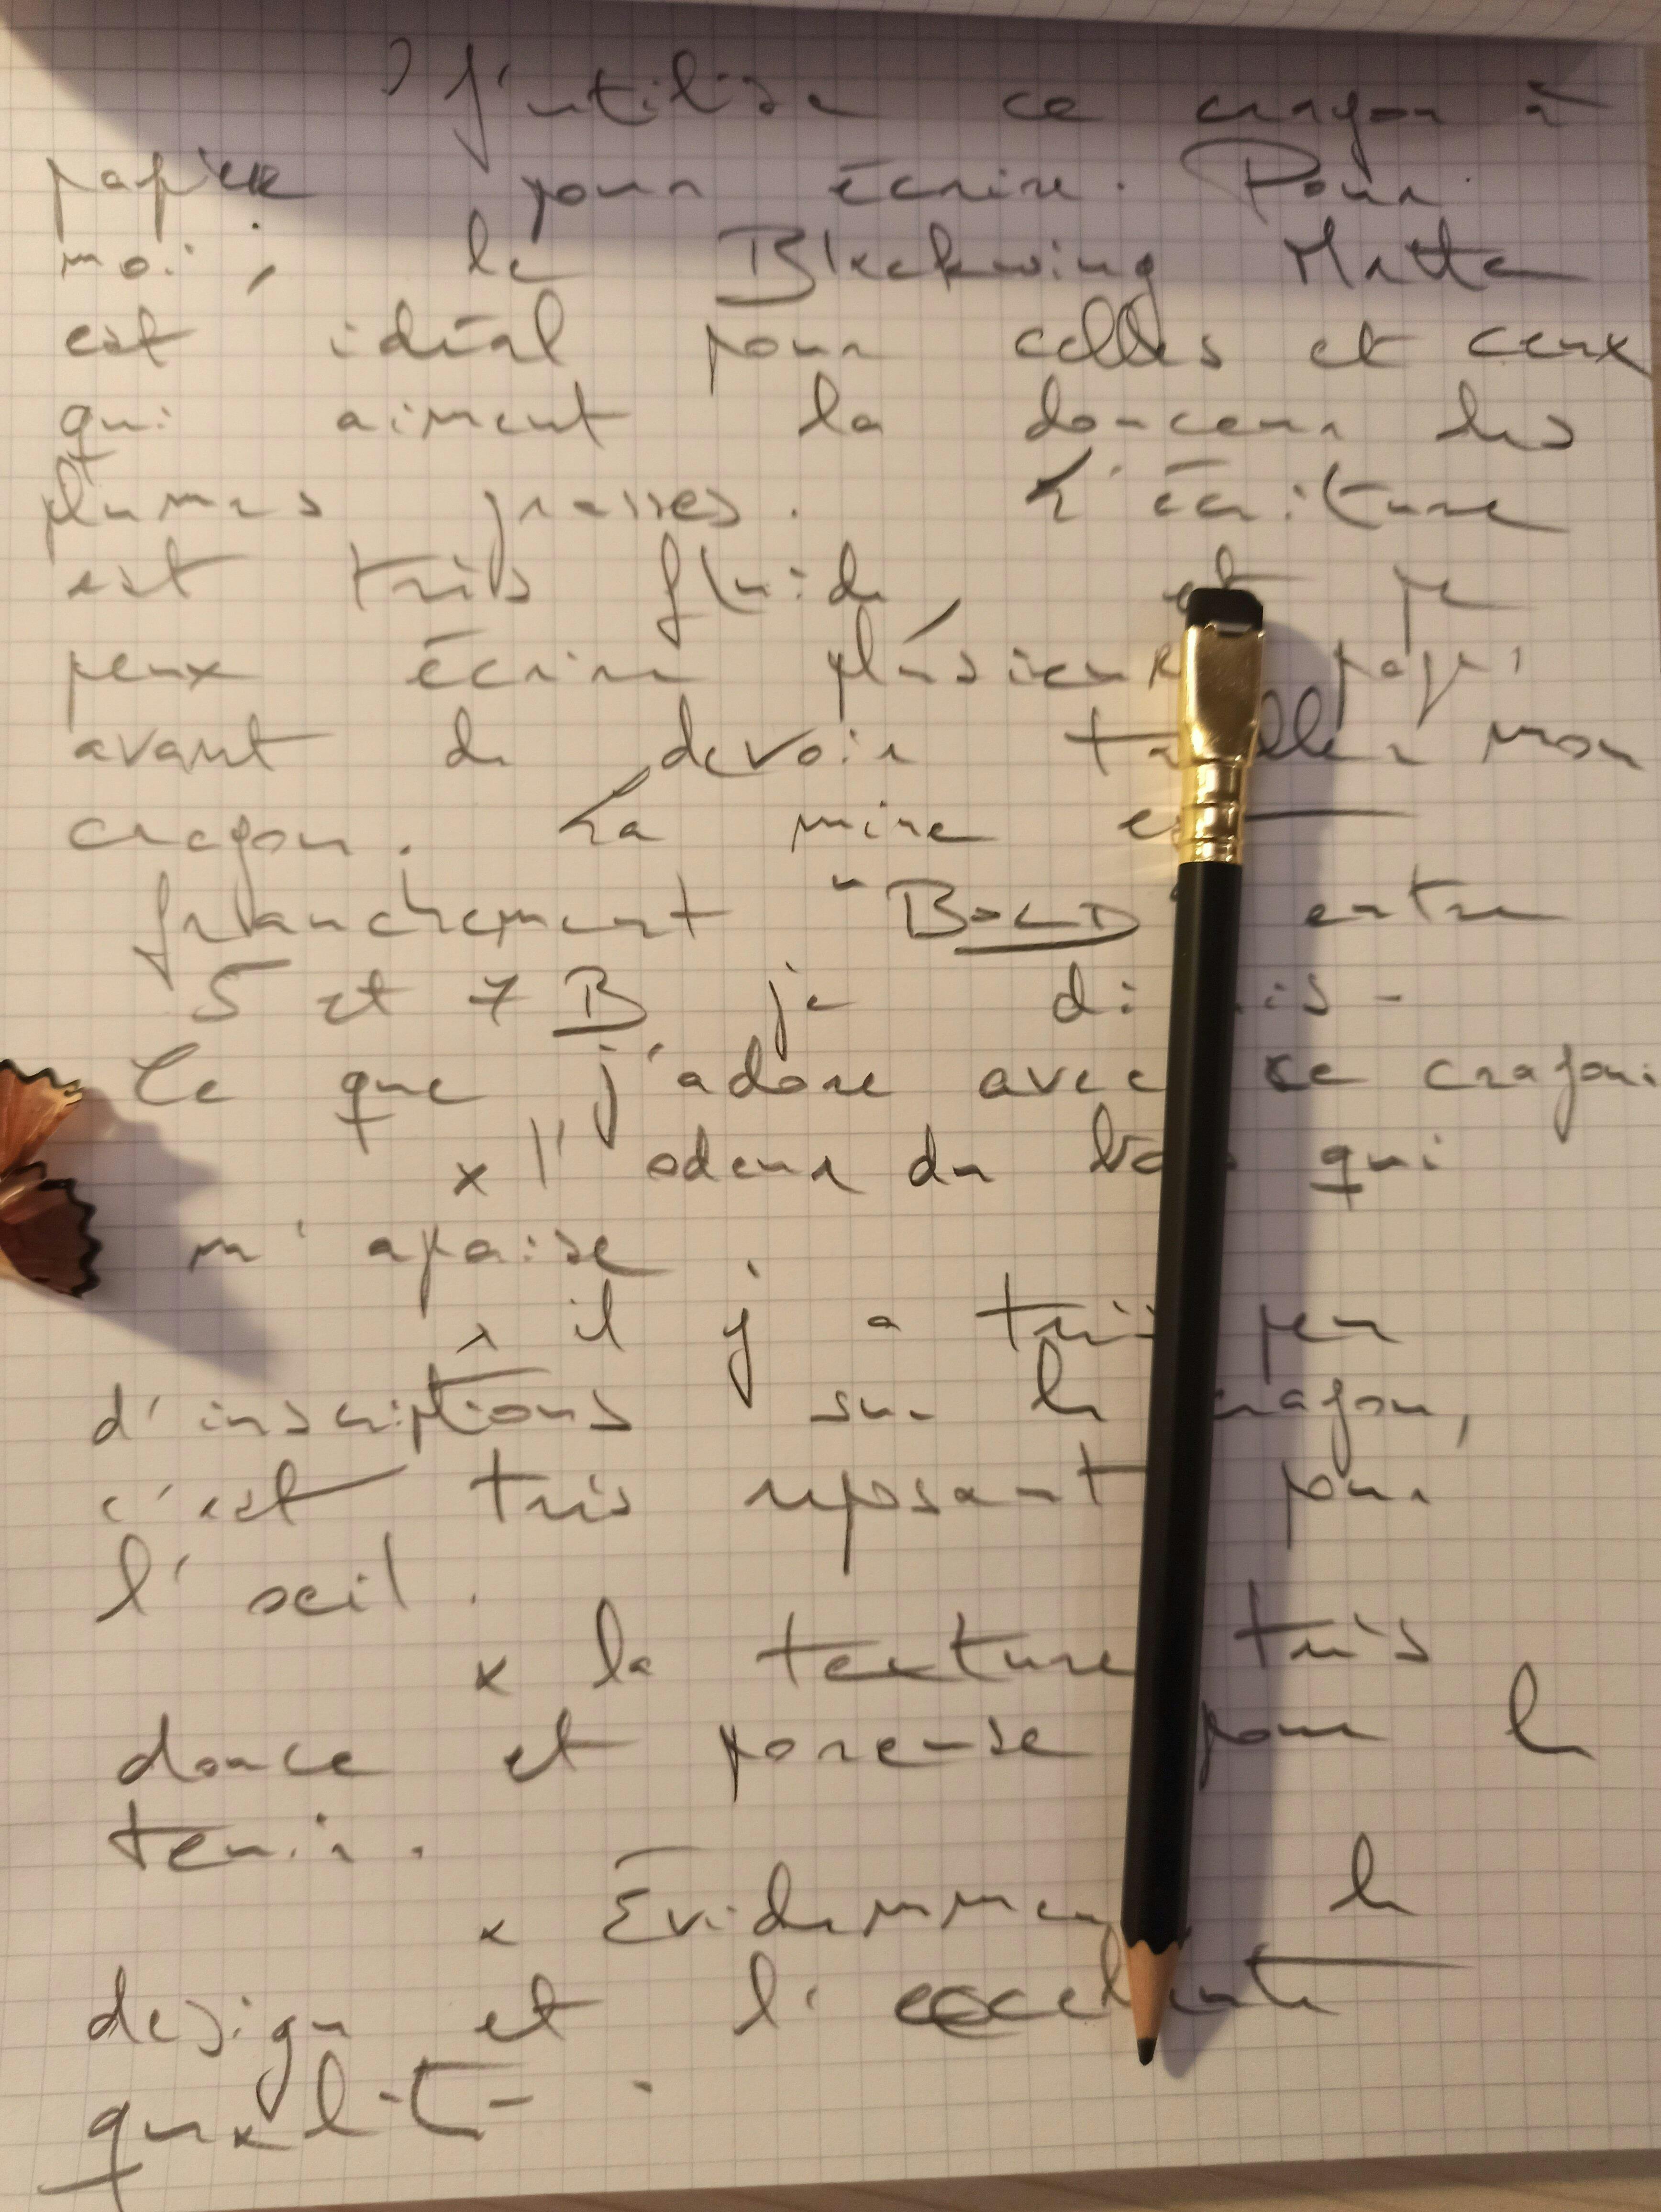 J'utilise ce crayon à
papier pour écrire. Pour
moi, le Blackwing Matte
est idéal pour celles et ceux
qui aiment la douceur des
plumes grasses. L'écriture
est très fluide, et je
peux écrire plusieurs pages
avant de devoir tailler mon
crayon. La mine est
franchement "BOLD" entre
5 et 7 B je dirais-
Ce que j'adore avec ce crayon:
x l'odeur du bois qui
m'apaise.
x il y a très peu
d'inscriptions sur le crayon,
c'est très reposant pour
l'oeil.
x la texture très
douce et poreuse pour le
tenir.
x Évidemment le
design et l'excellente
qualité.